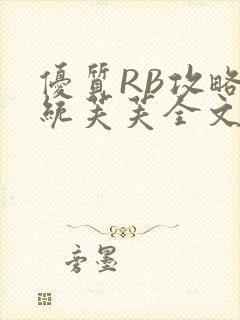 優質RB攻略
統芙芙全文
旁墨